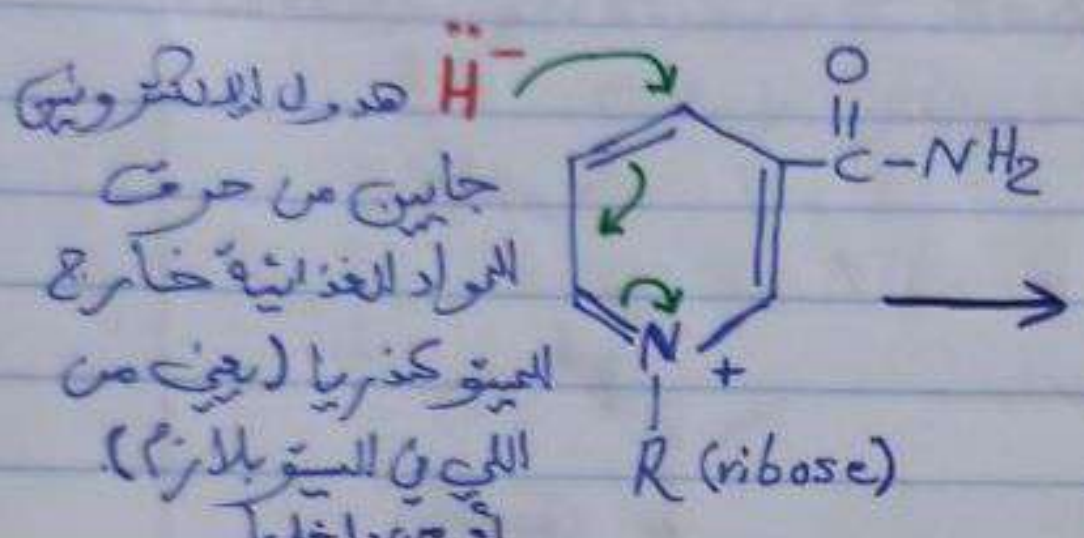 هدول الإلكترونين H⁻
جايين من حرق
المواد الغذائية خارج
الميتوكندريا (يعني من
اللي في السيتوبلازم).
أو من داخلها
O
C-NH₂
N +
R (ribose)